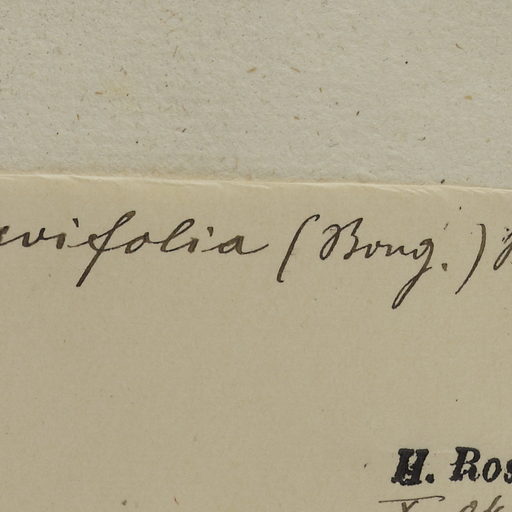 vifolia (Bong.)
H. Ros